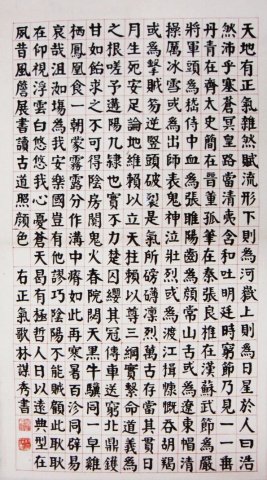 天地有正氣雜然賦流形下則爲河嶽上則爲日星於人曰浩
然沛乎塞蒼冥皇路當清夷含和吐明廷時窮節乃見一一垂
丹青在齊太史簡在晉董狐筆在秦張良椎在漢蘇武節爲嚴
將軍頭爲嵇侍中血爲張睢陽齒爲顏常山舌或爲遼東帽清
操厲冰雪或爲出師表鬼神泣壯烈或爲渡江楫慷慨吞胡羯
或爲擊賊笏逆豎頭破裂是氣所磅礴凜烈萬古存當其貫日
月生死安足論地維賴以立天柱賴以尊三綱實繫命道義爲
之根嗟予遘陽九隸也實不力楚囚纓其冠傳車送窮北鼎鑊
甘如飴求之不可得陰房闃鬼火春院閟天黑牛驥同一皁雞
棲鳳凰食一朝蒙霧露分作溝中瘠如此再寒暑百沴自辟易
哀哉沮洳場爲我安樂國豈有他謬巧陰陽不能賊顧此耿耿
在仰視浮雲白悠悠我心憂蒼天曷有極哲人日以遠典型在
夙昔風簷展書讀古道照顏色 右正氣歌 林謀秀書